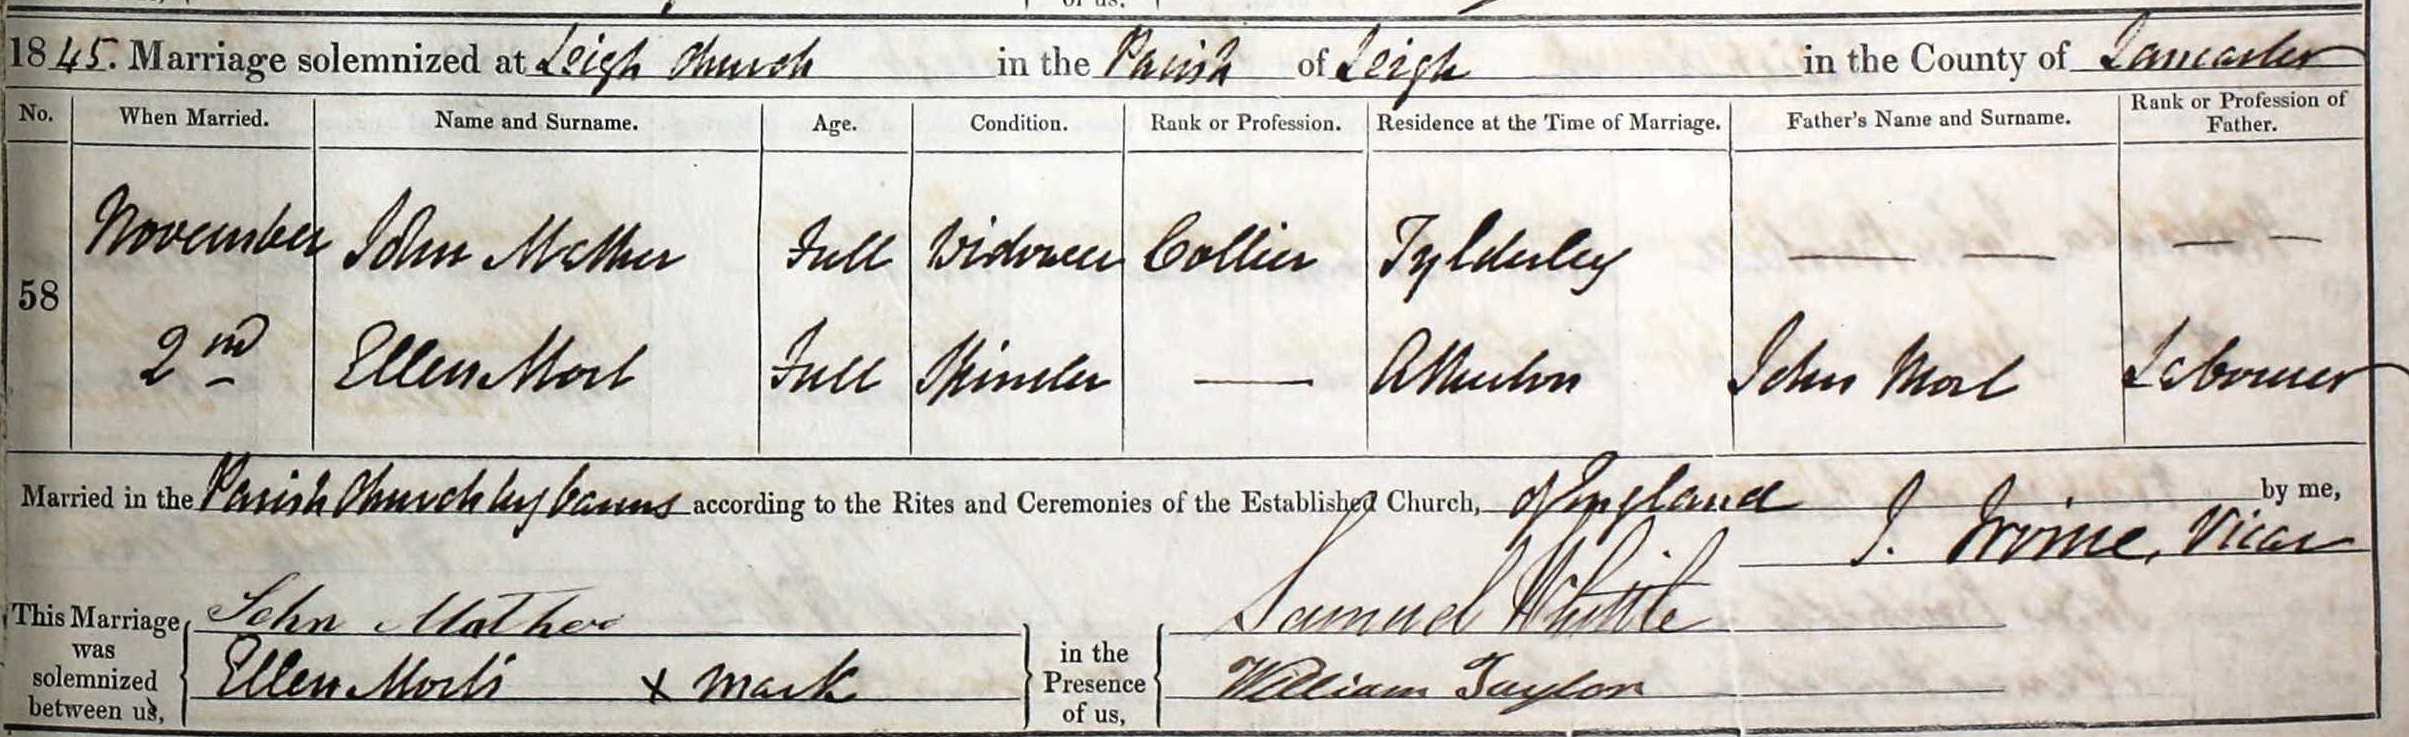 1845. Marriage solemnized at Leigh Church in the Parish of Leigh in the County of Lancaster
No. When Married. Name and Surname. Age. Condition. Rank or Profession. Residence at the Time of Marriage. Father's Name and Surname. Rank or Profession of Father.
58 November John Mather Full Widower Collier Tyldesley — — — —
2nd Ellen Mort Full Spinster — Atherton John Mort Labourer
Married in the Parish Church by banns according to the Rites and Ceremonies of the Established Church, of England by me,
J. Irvine, Vicar
This Marriage was solemnized between us, John Mather in the Presence of us, Samuel Whittle
Ellen Mort's x mark William Taylor